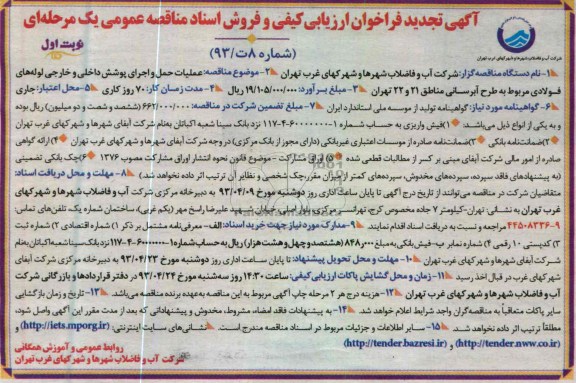 آگهی تجدید فراخوان ارزیابی کیفی و فروش اسناد مناقصه عمومی یک مرحله‌ای
(شماره ۸ت/۹۳)
نوبت اول
شرکت آب و فاضلاب شهرها و شهرکهای غرب تهران
۱- نام دستگاه مناقصه گزار: شرکت آب و فاضلاب شهرها و شهرکهای غرب تهران ۲- موضوع مناقصه: عملیات حمل و اجرای پوشش داخلی و خارجی لوله‌های
فولادی مربوط به طرح آبرسانی مناطق ۲۱ و ۲۲ تهران ۳- مبلغ برآورد: ۱۹/۱۰۵/۰۰۰/۰۰۰ ریال ۴- مدت زمان کار: ۷۰ روز کاری ۵- محل اعتبار: جاری
۶- گواهینامه مورد نیاز: گواهینامه تولید از موسسه ملی استاندارد ایران ۷- مبلغ تضمین شرکت در مناقصه: ۶۶۲/۰۰۰/۰۰۰ (ششصد و شصت و دو میلیون) ریال بوده
و به یکی از انواع ذیل می‌باشد: ۱) فیش واریزی به حساب شماره ۱-۶۰۰۰۰۰۰-۴-۱۱۷ نزد بانک سینا شعبه اکباتان بنام شرکت آبفای شهرها و شهرکهای غرب تهران
۲) ضمانتنامه بانکی ۳) ضمانتنامه صادره از موسسات اعتباری غیربانکی (دارای مجوز از بانک مرکزی) در وجه شرکت آبفای شهرها و شهرکهای غرب تهران ۴) ارائه گواهی
صادره از امور مالی شرکت آبفای مبنی بر کسر از مطالبات قطعی شده ۵) اوراق مشارکت - موضوع قانون نحوه انتشار اوراق مشارکت مصوب ۱۳۷۶ ۶) چک بانکی تضمینی
(به پیشنهادهای فاقد سپرده، سپرده‌های مخدوش، سپرده‌های کمتر از میزان مقرر، چک شخصی و نظایر آن ترتیب اثر داده نخواهد شد.) ۸- مهلت و محل دریافت اسناد:
متقاضیان شرکت در مناقصه می‌توانند از تاریخ درج آگهی تا پایان ساعت اداری روز دوشنبه مورخ ۹۳/۰۴/۰۹ به دبیرخانه مرکزی شرکت آب و فاضلاب شهرها و شهرکهای
غرب تهران به نشانی: تهران- کیلومتر ۷ جاده مخصوص کرج، تهرانسر، بلوار اصلی، خیابان شهید علیرضا راسخ مهر (یکم غربی)، ساختمان شماره یک، تلفن‌های تماس
۹-۴۴۵۰۸۳۳۶ مراجعه و نسبت به دریافت اسناد اقدام نمایند. ۹- مدارک مورد نیاز جهت خرید اسناد: الف- معرفی‌نامه مشتمل بر ذکر ۱) شماره اقتصادی ۲) شماره ثبت
۳) کدپستی ۱۰ رقمی ۴) شماره نمابر ب- فیش بانکی به مبلغ ۸۴۸/۰۰۰ (هشتصد و چهل و هشت هزار) ریال به حساب شماره ۱-۶۰۰۰۰۰۰-۴-۱۱۷ نزد بانک سینا شعبه اکباتان بنام
شرکت آبفای شهرها و شهرکهای غرب تهران ۱۰- مهلت و محل تحویل پیشنهاد: تا پایان ساعت اداری روز دوشنبه مورخ ۹۳/۰۴/۲۳ به دبیرخانه مرکزی شرکت آبفای
شهرکهای غرب در قبال اخذ رسید ۱۱- زمان و محل گشایش پاکات ارزیابی کیفی: ساعت ۱۴:۳۰ روز سه‌شنبه مورخ ۹۳/۰۴/۲۴ در دفتر قراردادها و بازرگانی شرکت
آب و فاضلاب شهرها و شهرکهای غرب تهران ۱۲- هزینه درج هر ۲ مرحله چاپ آگهی مربوط به این مناقصه به عهده برنده مناقصه می‌باشد. ۱۳- تاریخ و زمان بازگشایی
سایر پاکات متعاقباً به مناقصه‌گران واجد شرایط اعلام خواهد شد. ۱۴- به پیشنهادات فاقد امضاء، مشروط، مخدوش و پیشنهاداتی که بعد از مدت مقرر این آگهی واصل شود،
مطلقاً ترتیب اثر داده نخواهد شد. ۱۵- سایر اطلاعات و جزئیات مربوط در اسناد مناقصه مندرج است. نشانی‌های سایت اینترنتی: (http://iets.mporg.ir) و
(http://tender.nww.co.ir) و (http://tender.bazresi.ir)
روابط عمومی و آموزش همگانی
شرکت آب و فاضلاب شهرها و شهرکهای غرب تهران